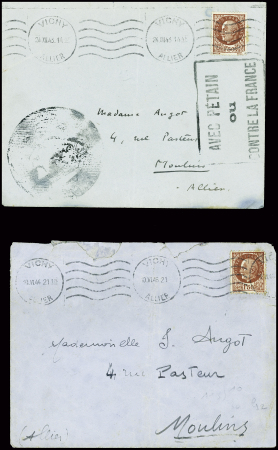 VICHY
ALLIER
VICHY
ALLIER
AVEC PÉTAIN
ou
CONTRE LA FRANCE
Madame Angot
4, rue Pasteur
Moulins
Allier.
VICHY
ALLIER
VICHY
ALLIER
Mademoiselle J. Angot
4 rue Pasteur
Moulins
(Allier)